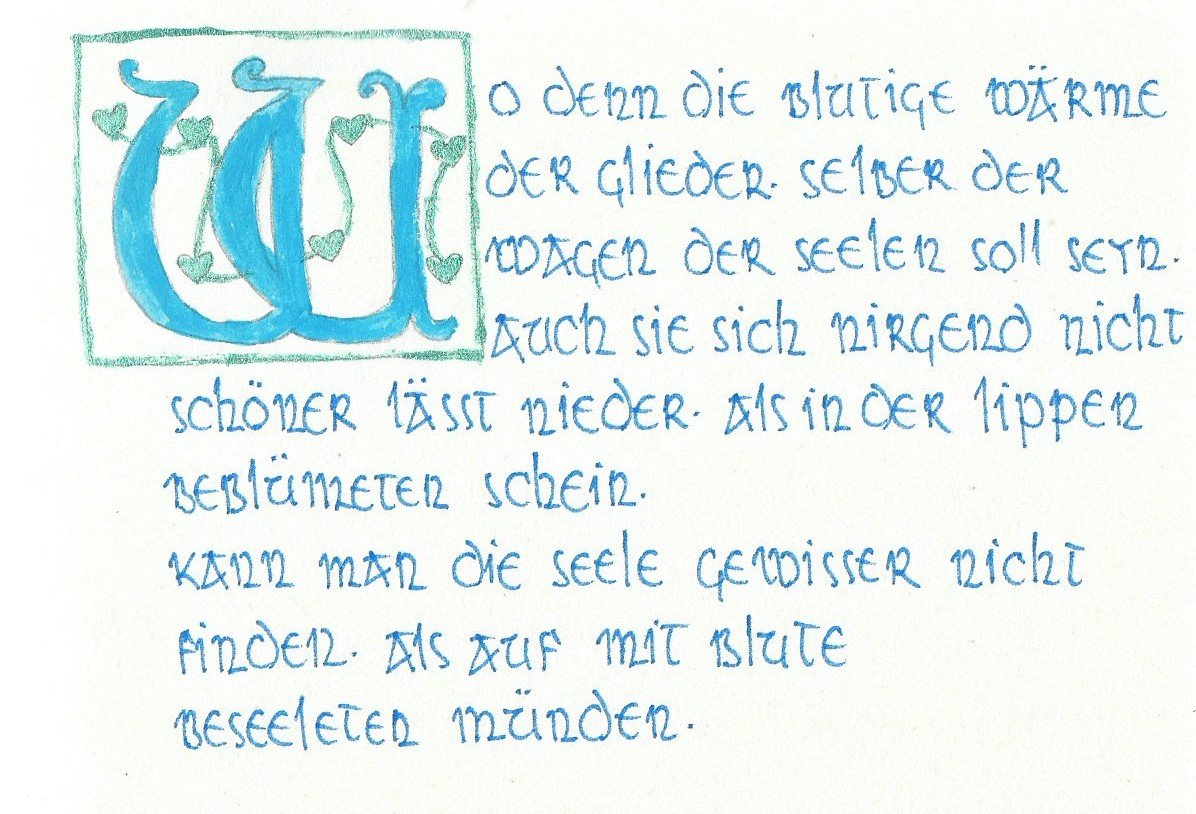 Wo denn die blutige wärme
der glieder. selber der
wagen der seelen soll seyn.
auch sie sich nirgend nicht
schöner lässt nieder. als in der lippen
beblümeten schein.
kann man die seele gewisser nicht
finden. als auf mit blute
beseeleten münden.